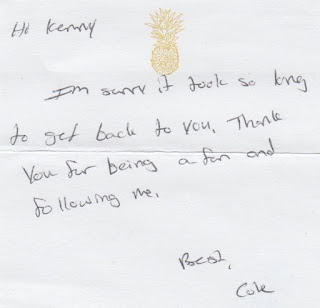 Hi Kenny
I'm sorry it took so long
to get back to you. Thank
you for being a fan and
following me.
Best,
Cole